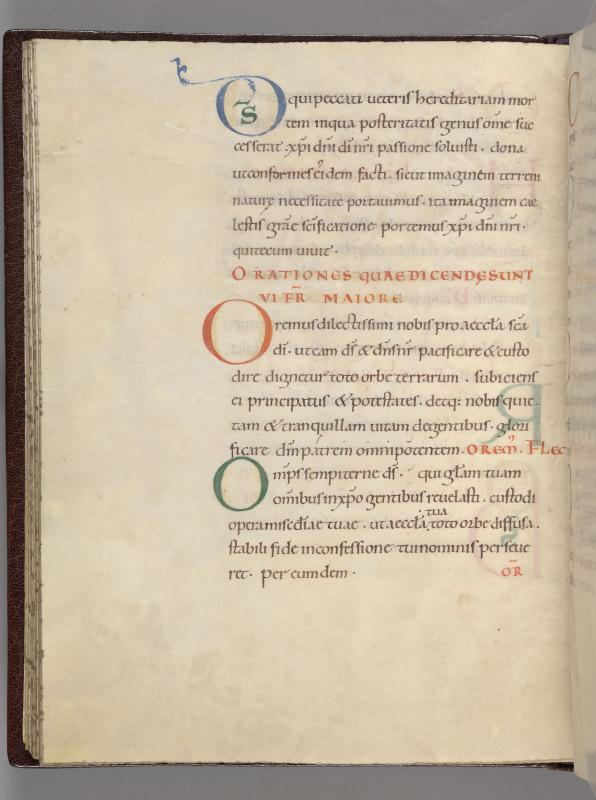 Ds qui peccati ueteris hereditariam mor
tem in qua posteritatis genus om̅e suc
cesserat xp̅i dn̅i di̅ nr̅i passione soluisti. dona
ut conformes eidem facti. sicut imaginem terreni
naturę necessitate portauimus. ita imaginem cae
lestis gra̅e sc̅ificatione portemus xp̅i dn̅i nr̅i.
qui tecum uiuit.
ORATIONES QUAE DICENDĘ SUNT
VI FR̅ MAIORE
Oremus dilectissimi nobis pro aeccl̅a sc̅a
di̅. ut eam ds̅ & dn̅s nr̅ pacificare & custo
dire dignetur toto orbe terrarum. subiciens
ei principatus & potestates. detq: nobis quie
tam & tranquillam uitam degentibus. glori
ficare dm̅ patrem omnipotentem. OREM̅. FLEC
Om̅ps sempiterne ds̅. qui gl̅am tuam
omnibus in xp̅o gentibus reuelasti. custodi
opera misc̅diae tuae. ut aeccl̅a tua toto orbe diffusa.
stabili fide in confessione tui nominis perseue
ret. per eumdem. OR̅